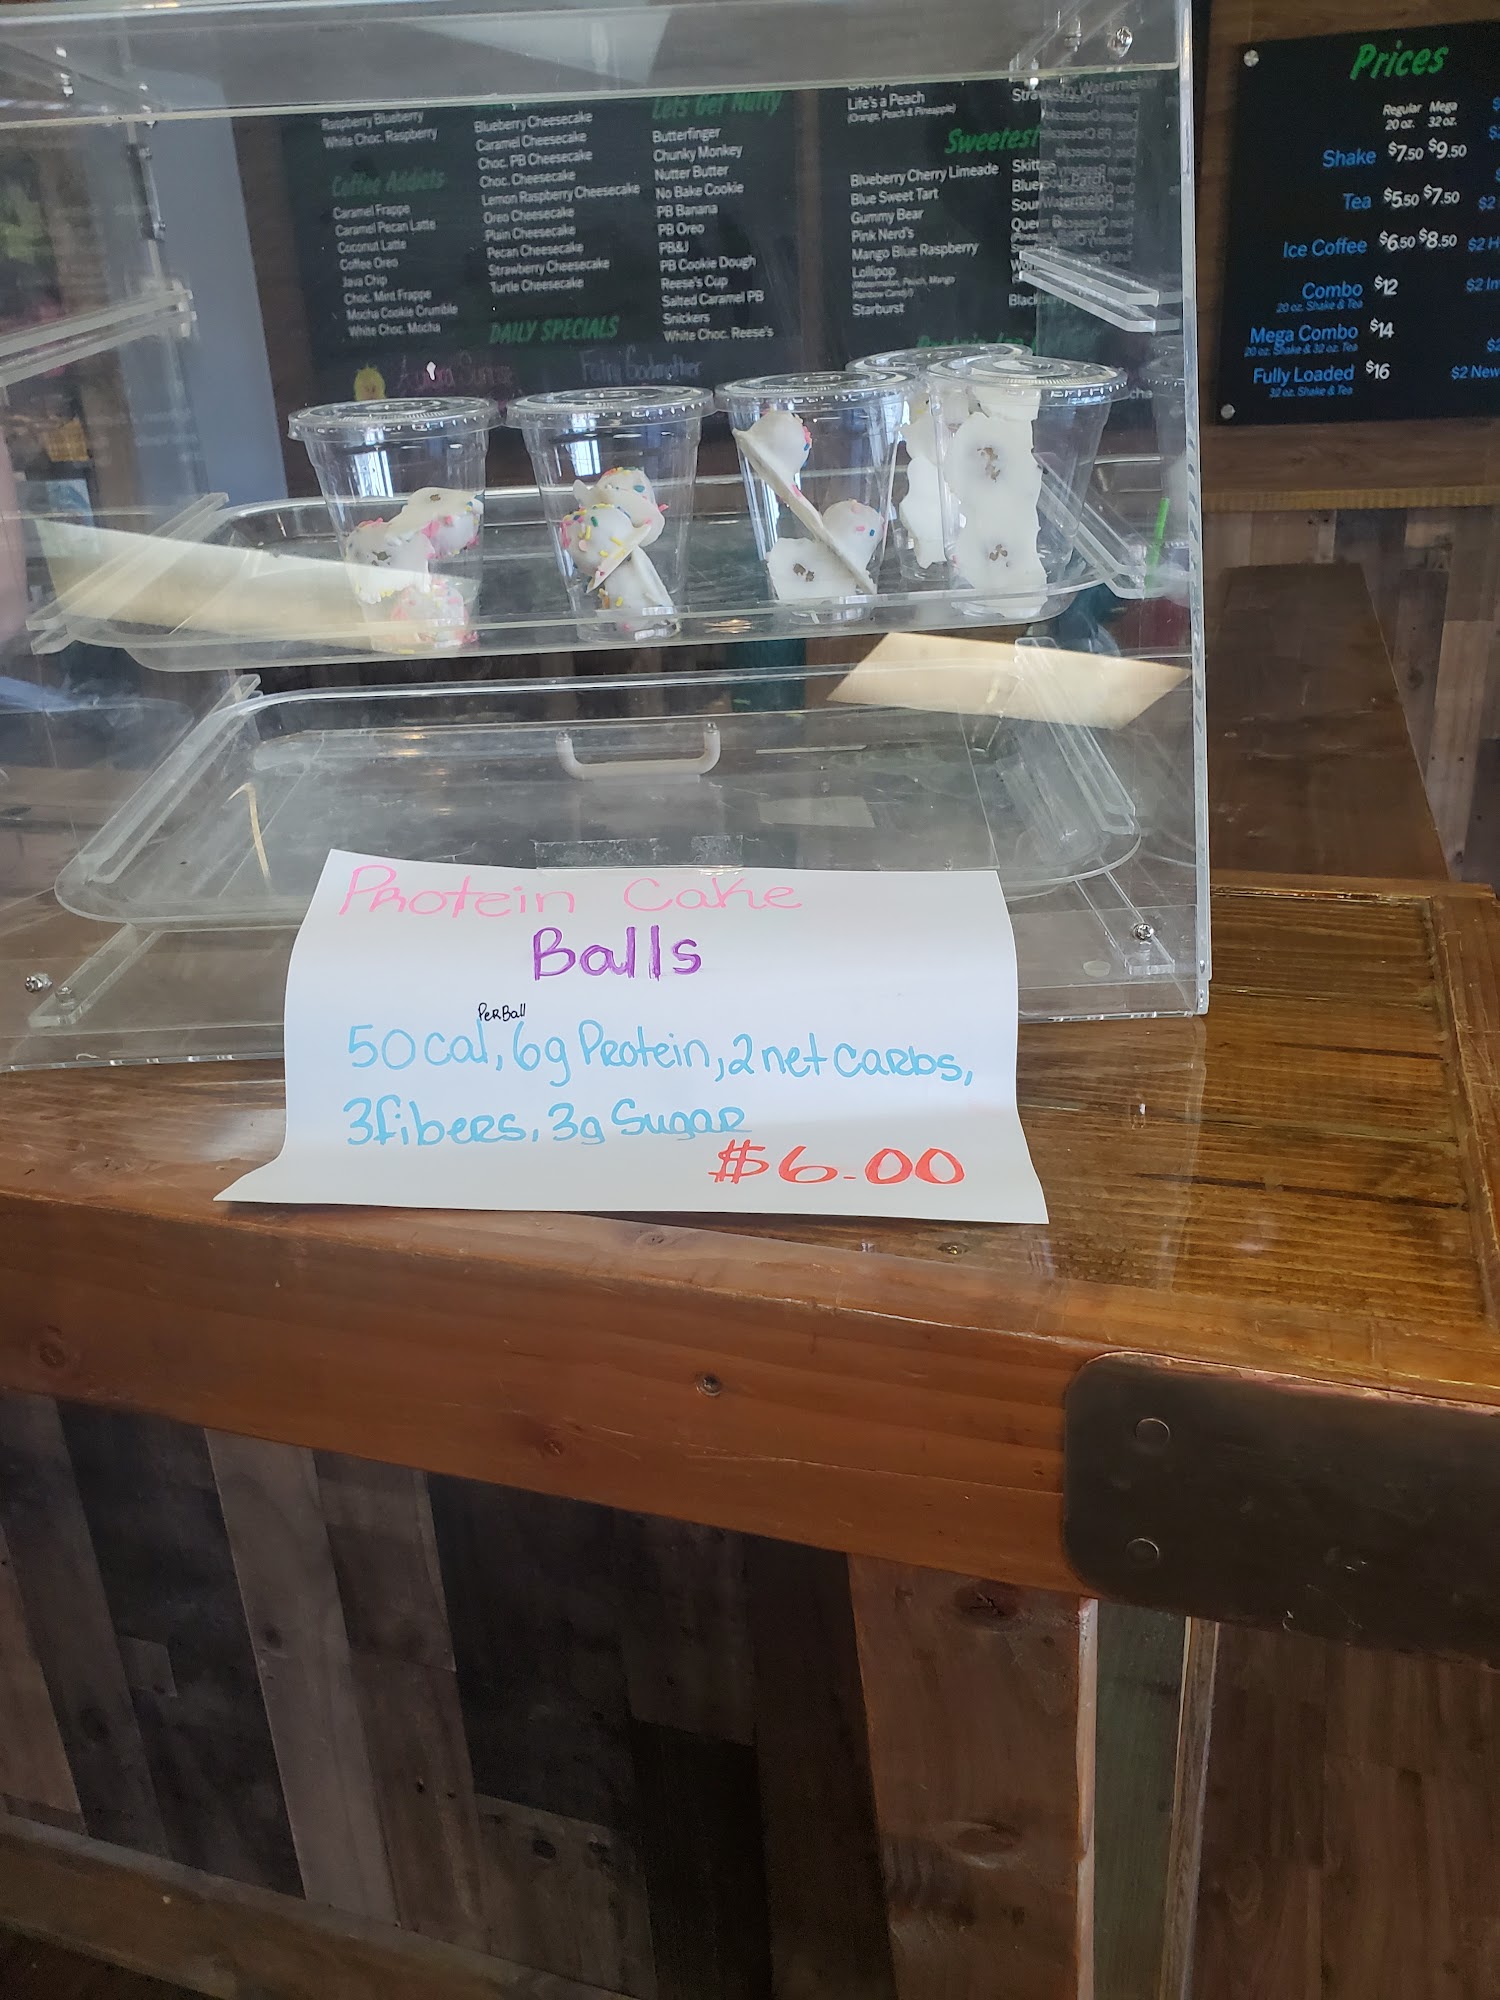 Raspberry Blueberry
White Choc. Raspberry
Coffee Addicts
Caramel Frappe
Caramel Pecan Latte
Coconut Latte
Coffee Oreo
Java Chip
Choc. Mint Frappe
Mocha Cookie Crumble
White Choc. Mocha
Blueberry Cheesecake
Caramel Cheesecake
Choc. PB Cheesecake
Choc. Cheesecake
Lemon Raspberry Cheesecake
Oreo Cheesecake
Plain Cheesecake
Pecan Cheesecake
Strawberry Cheesecake
Turtle Cheesecake
DAILY SPECIALS
Fairy Godmother
Lets Get Nutty
Butterfinger
Chunky Monkey
Nutter Butter
No Bake Cookie
PB Banana
PB Oreo
PB&J
PB Cookie Dough
Reese's Cup
Salted Caramel PB
Snickers
White Choc. Reese's
Life's a Peach
(Orange, Peach & Pineapple)
Sweetest
Blueberry Cherry Limeade
Blue Sweet Tart
Gummy Bear
Pink Nerd's
Mango Blue Raspberry
Lollipop
(Watermelon, Peach, Mango
Rainbow Candy)
Starburst
Prices
Regular Mega
20 oz. 32 oz.
Shake $7.50 $9.50
Tea $5.50 $7.50 $2
Ice Coffee $6.50 $8.50 $2 H
Combo $12
20 oz. Shake & Tea
$2 In
Mega Combo $14
20 oz. Shake & 32 oz. Tea
Fully Loaded $16
32 oz. Shake & Tea
$2 New
Protein Cake
Balls
Per Ball
50 cal, 6g Protein, 2 net carbs,
3 fibers, 3g Sugar
$6.00